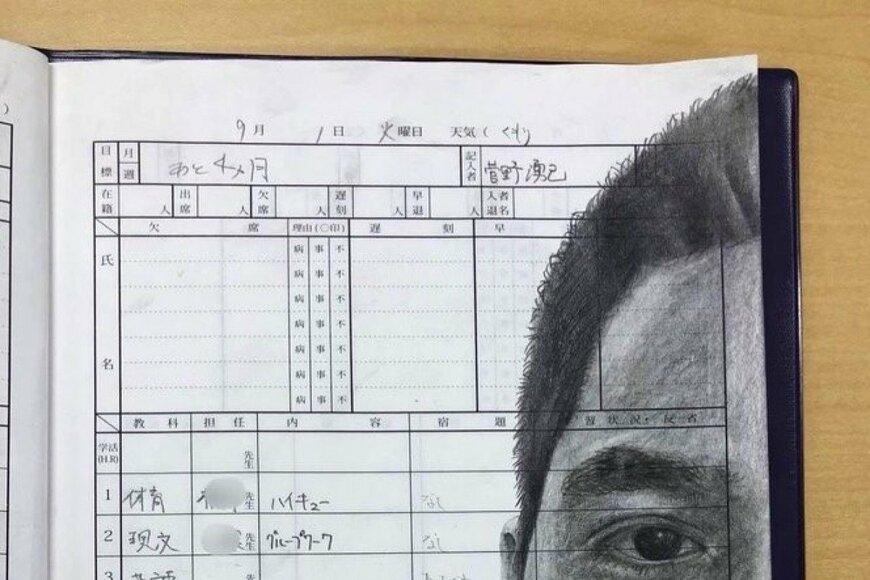 9月 1日 火曜日 天気( くもり
目標 月週 あと4ヶ月 記入者 菅野湧己
在籍 人 出席 人 欠席 人 遅刻 人 早退 人 入者退名
欠席 理由(○印) 遅刻 早
氏名
病 事 不
病 事 不
病 事 不
病 事 不
病 事 不
病 事 不
病 事 不
教科 担任 内容 宿題 習状況・反省
学活(H.R) 先生
1 体育 先生 ハイキュー なし
2 現文 先生 グループワーク なし
3